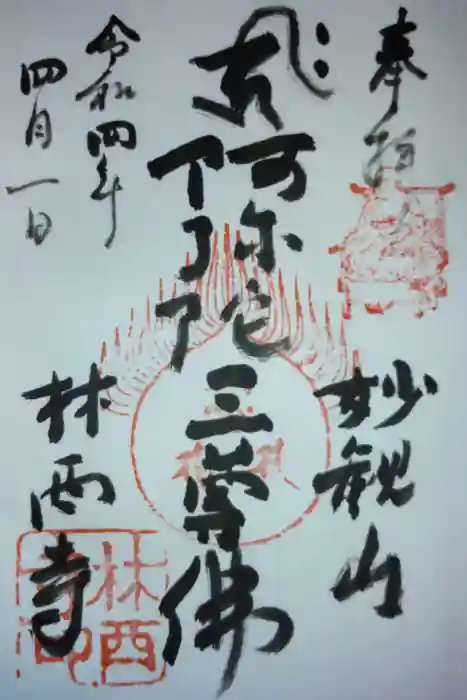 奉拝
妙観山
阿弥陀三尊佛
令和四年
四月一日
林西寺
林西